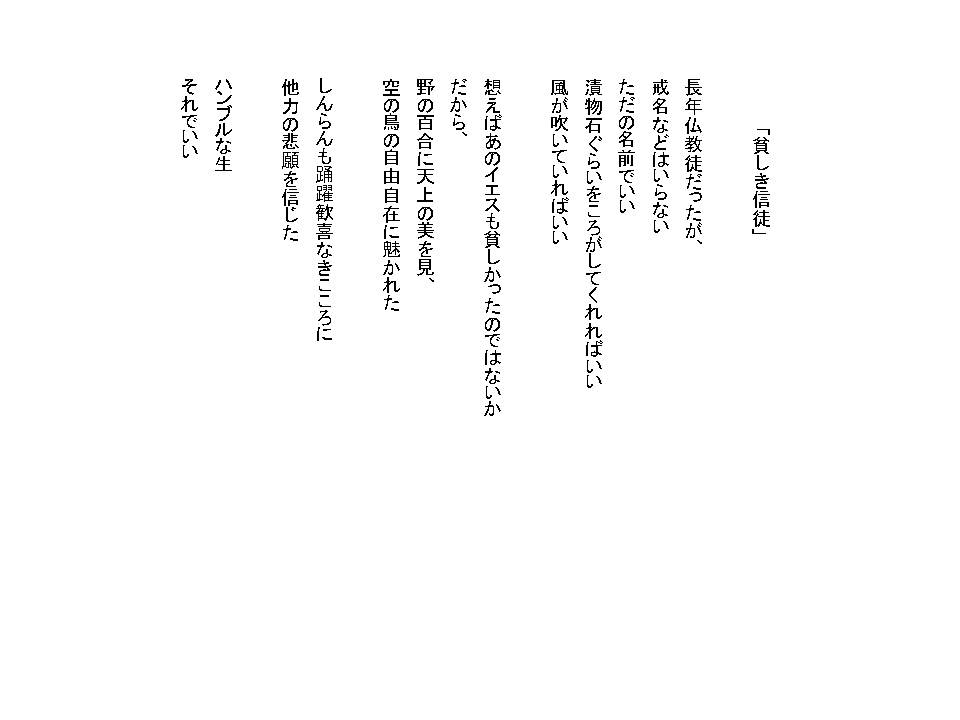 「貧しき信徒」
長年仏教徒だったが、
戒名などはいらない
ただの名前でいい
漬物石ぐらいをころがしてくれればいい
風が吹いていればいい
想えばあのイエスも貧しかったのではないか
だから、
野の百合に天上の美を見、
空の鳥の自由自在に魅かれた
しんらんも踊躍歓喜なきこころに
他力の悲願を信じた
ハンブルな生
それでいい